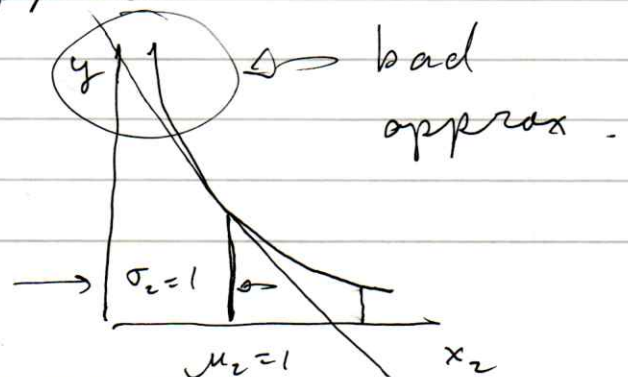 y bad
approx.
σ₂=1
μ₂=1 x₂